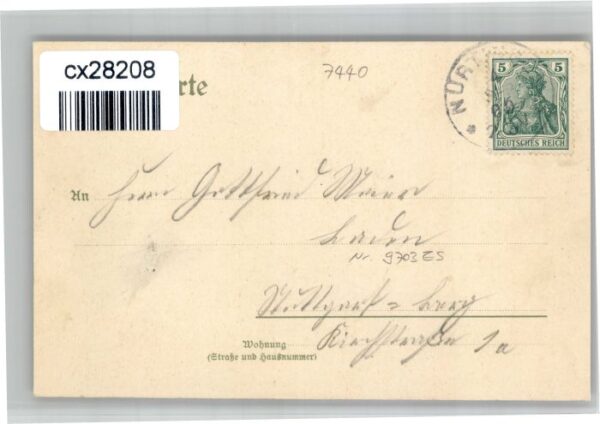 cx28208
rte
7440
NÜRT
5 5
DEUTSCHES REICH
An Herrn Gottfried Maier
Baden
Nr. 9703 ES
Stuttgart = Berg
Wohnung
(Straße und Hausnummer)
Kirchstraße 1a